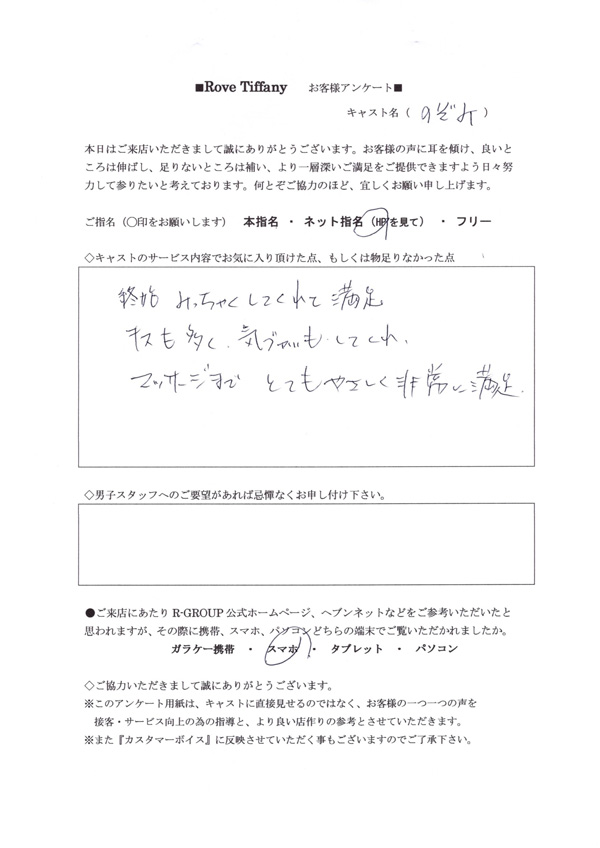 ■Rove Tiffany　お客様アンケート■
キャスト名（ のぞみ ）
本日はご来店いただきまして誠にありがとうございます。お客様の声に耳を傾け、良いと
ころは伸ばし、足りないところは補い、より一層深いご満足をご提供できますよう日々努
力して参りたいと考えております。何とぞご協力のほど、宜しくお願い申し上げます。
ご指名（〇印をお願いします）　本指名 ・ ネット指名（HPを見て） ・ フリー
◇キャストのサービス内容でお気に入り頂けた点、もしくは物足りなかった点
終始 みっちゃくしてくれて満足
キスも多く、気づかいもしてくれ、
マッサージまで とてもやさしく非常に満足.
◇男子スタッフへのご要望があれば忌憚なくお申し付け下さい。
●ご来店にあたり R-GROUP 公式ホームページ、ヘブンネットなどをご参考いただいたと
思われますが、その際に携帯、スマホ、パソコンどちらの端末でご覧いただかれましたか。
ガラケー携帯 ・ スマホ ・ タブレット ・ パソコン
◇ご協力いただきまして誠にありがとうございます。
※このアンケート用紙は、キャストに直接見せるのではなく、お客様の一つ一つの声を
接客・サービス向上の為の指導と、より良い店作りの参考とさせていただきます。
※また『カスタマーボイス』に反映させていただく事もございますのでご了承下さい。